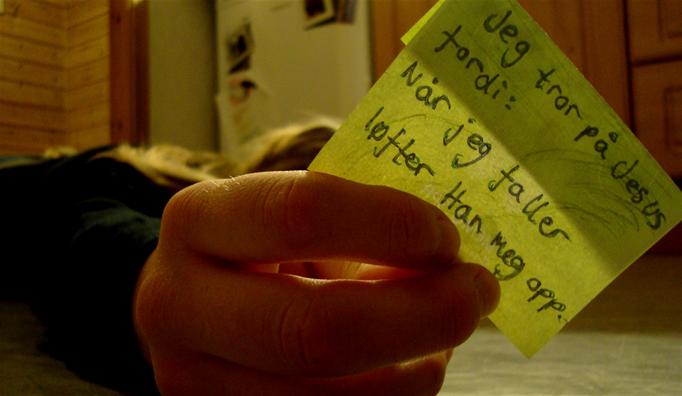 Jeg tror på Jesus
fordi:
Når jeg faller
løfter Han meg opp.